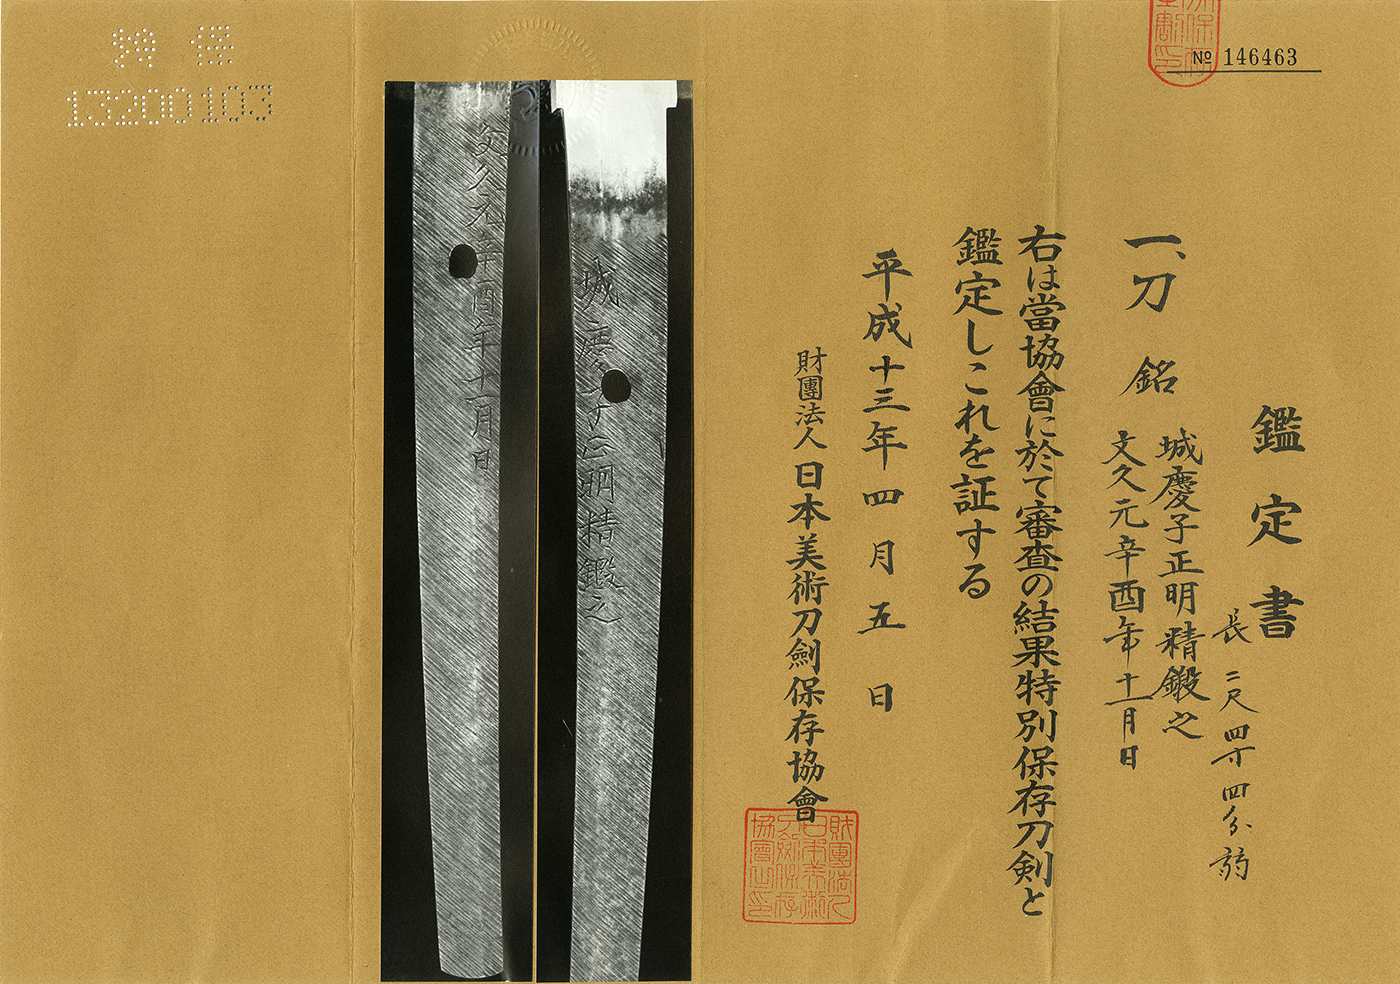 № 146463
鑑定書
一、刀 銘
城慶子正明精鍛之
文久元辛酉年十一月日
長 二尺四寸四分弱
右は當協會に於て審査の結果特別保存刀剣と
鑑定しこれを証する
平成十三年四月五日
財團法人日本美術刀劍保存協會
城慶子正明精鍛之
文久元辛酉年十一月日
特 保
13200103